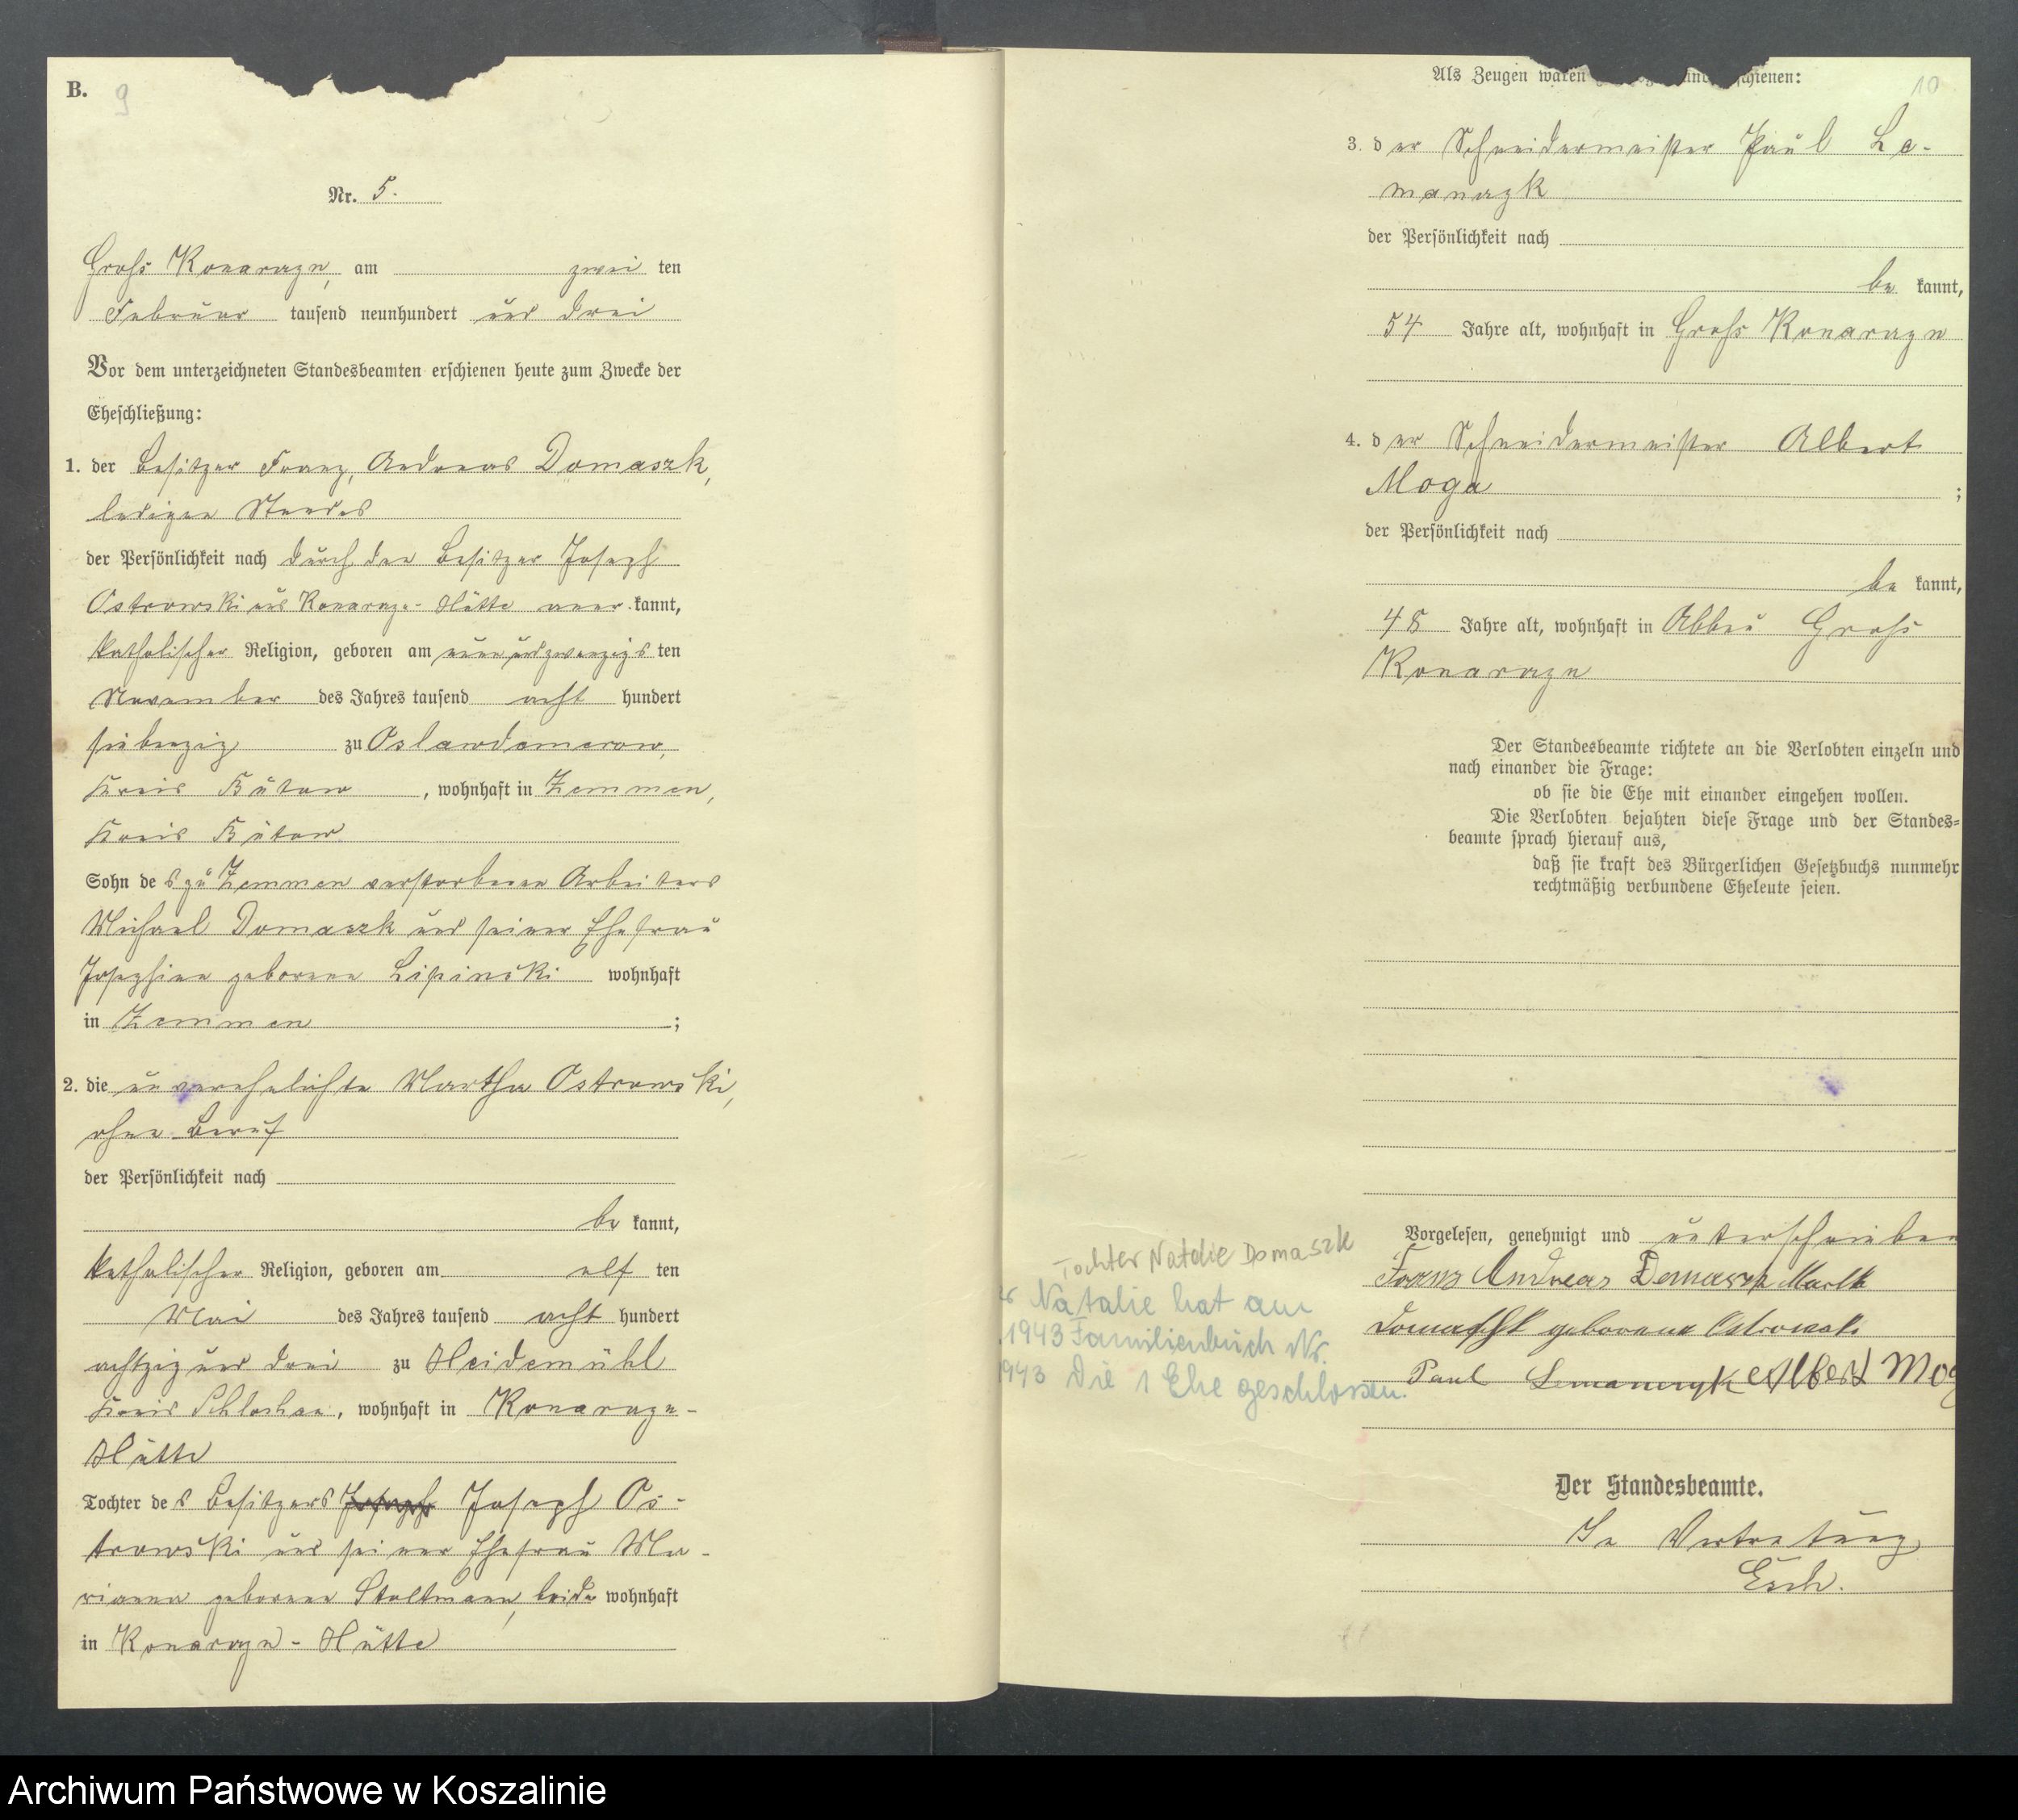 B. 9
Nr. 5.
Groß Konarczyn, am zwei ten
Februar tausend neunhundert und drei
Vor dem unterzeichneten Standesbeamten erschienen heute zum Zwecke der
Eheschließung:
1. der Besitzer Franz, Andreas Domaszk,
ledigen Standes
der Persönlichkeit nach durch den Besitzer Joseph
Ostrowski aus Konarzyn-Hütte aner kannt,
katholischer Religion, geboren am neunundzwanzigs ten
November des Jahres tausend acht hundert
siebenzig zu Oslawdamerow,
Kreis Bütow, wohnhaft in Zemmen,
Kreis Bütow
Sohn des zu Zemmen verstorbenen Arbeiters
Michael Domaszk und seiner Ehefrau
Josephine geborene Lipinski wohnhaft
in Zemmen;
2. die unverehelichte Martha Ostrowski,
ohne Beruf
der Persönlichkeit nach
be kannt,
katholischer Religion, geboren am elf ten
Mai des Jahres tausend acht hundert
achtzig und drei zu Heidemühl
Kreis Schlochau, wohnhaft in Konarzyn-
Hütte
Tochter des Besitzers Joseph Joseph Os-
trowski und seiner Ehefrau Ma-
rianna geborene Stoltmann, beide wohnhaft
in Konarzyn-Hütte
10
Als Zeugen waren schienen:
3. der Schneidermeister Paul Le-
manczyk
der Persönlichkeit nach
be kannt,
54 Jahre alt, wohnhaft in Groß Konarzyn
4. der Schneidermeister Albert
Moga;
der Persönlichkeit nach
be kannt,
48 Jahre alt, wohnhaft in Abbau Groß
Konarzyn
Der Standesbeamte richtete an die Verlobten einzeln und
nach einander die Frage:
ob sie die Ehe mit einander eingehen wollen.
Die Verlobten bejahten diese Frage und der Standes=
beamte sprach hierauf aus,
daß sie kraft des Bürgerlichen Gesetzbuchs nunmehr
rechtmäßig verbundene Eheleute seien.
Tochter Natalie Domaszk
Natalie hat am
1943 Familienbuch Nr.
1943 Die 1 Ehe geschlossen.
Vorgelesen, genehmigt und unterschrieben
Franz Andreas Domaszk Martha
Domaschk geborene Ostrowski
Paul Lemanczyk Albert Mog
Der Standesbeamte.
In Vertretung
Esch.
Archiwum Państwowe w Koszalinie